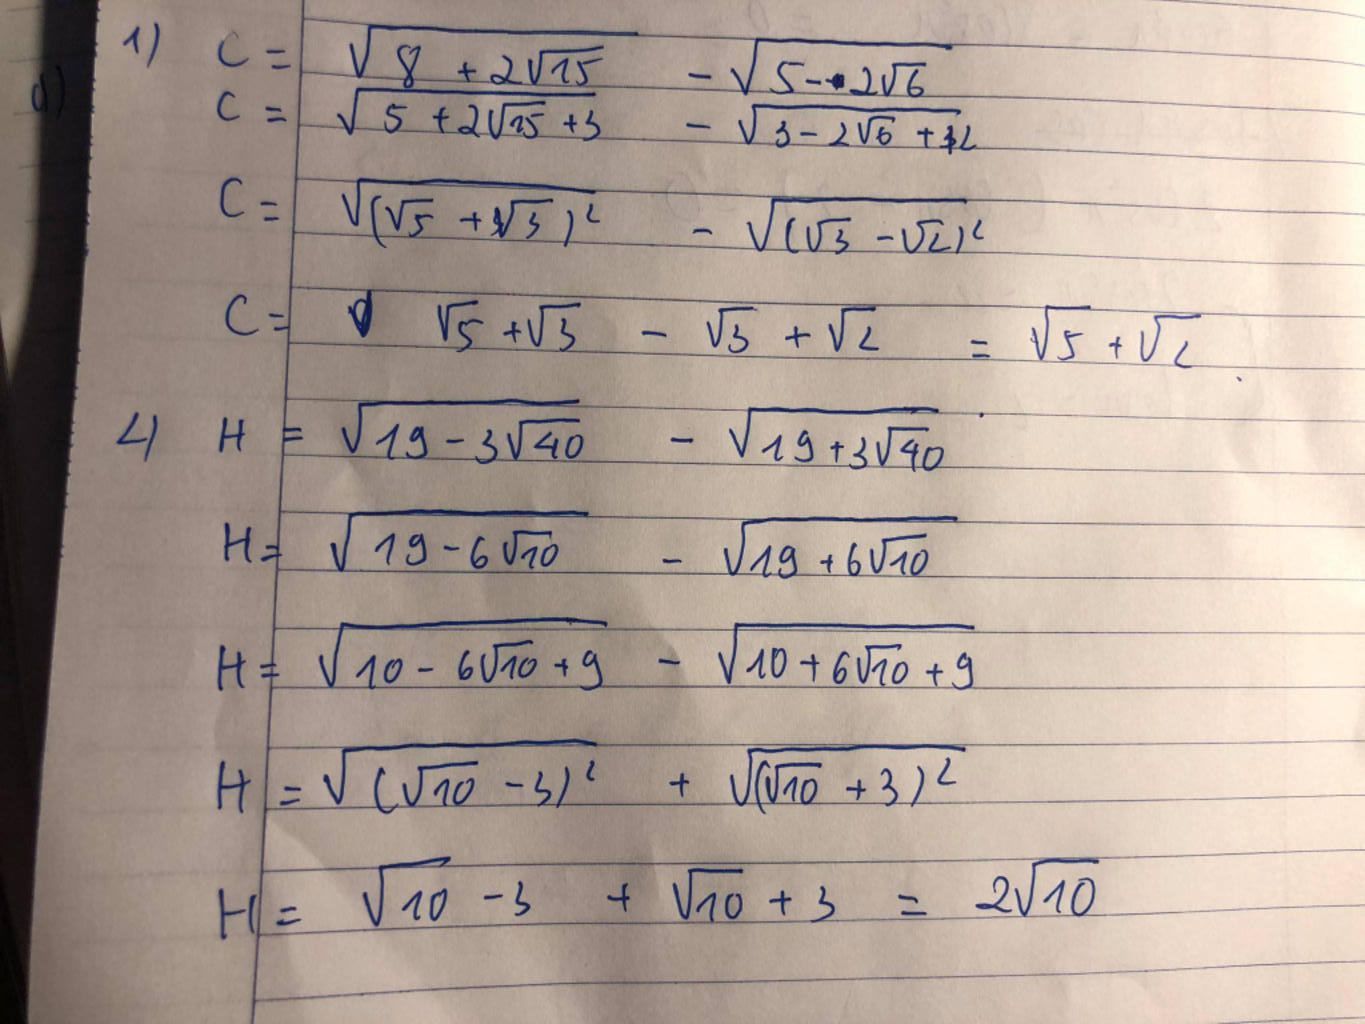 1) C = √(8 + 2√15) - √(5 - 2√6)
d) C = √(5 + 2√15 + 3) - √(3 - 2√6 + 2)
C = √((√5 + √3)²) - √((√3 - √2)²)
C = √5 + √3 - √3 + √2 = √5 + √2.
2) H = √(19 - 3√40) - √(19 + 3√40)
H = √(19 - 6√10) - √(19 + 6√10)
H = √(10 - 6√10 + 9) - √(10 + 6√10 + 9)
H = √((√10 - 3)²) + √((√10 + 3)²)
H = √10 - 3 + √10 + 3 = 2√10